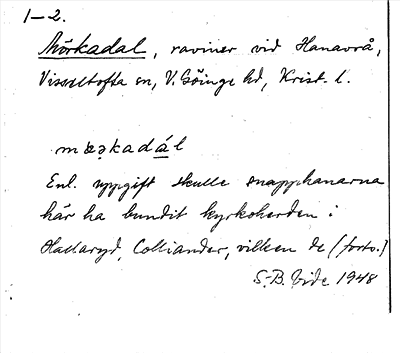 1–2.
Mörkadal, raviner vid Hanavrå,
Visseltofta sn, V. Göinge hd, Krist. l.
mœrkadál
Enl. uppgift skulle snapphanarna
här ha bundit kyrkoherden i
Hallaryd, Colliander, vilken de (forts.)
S.-B. Vide 1948